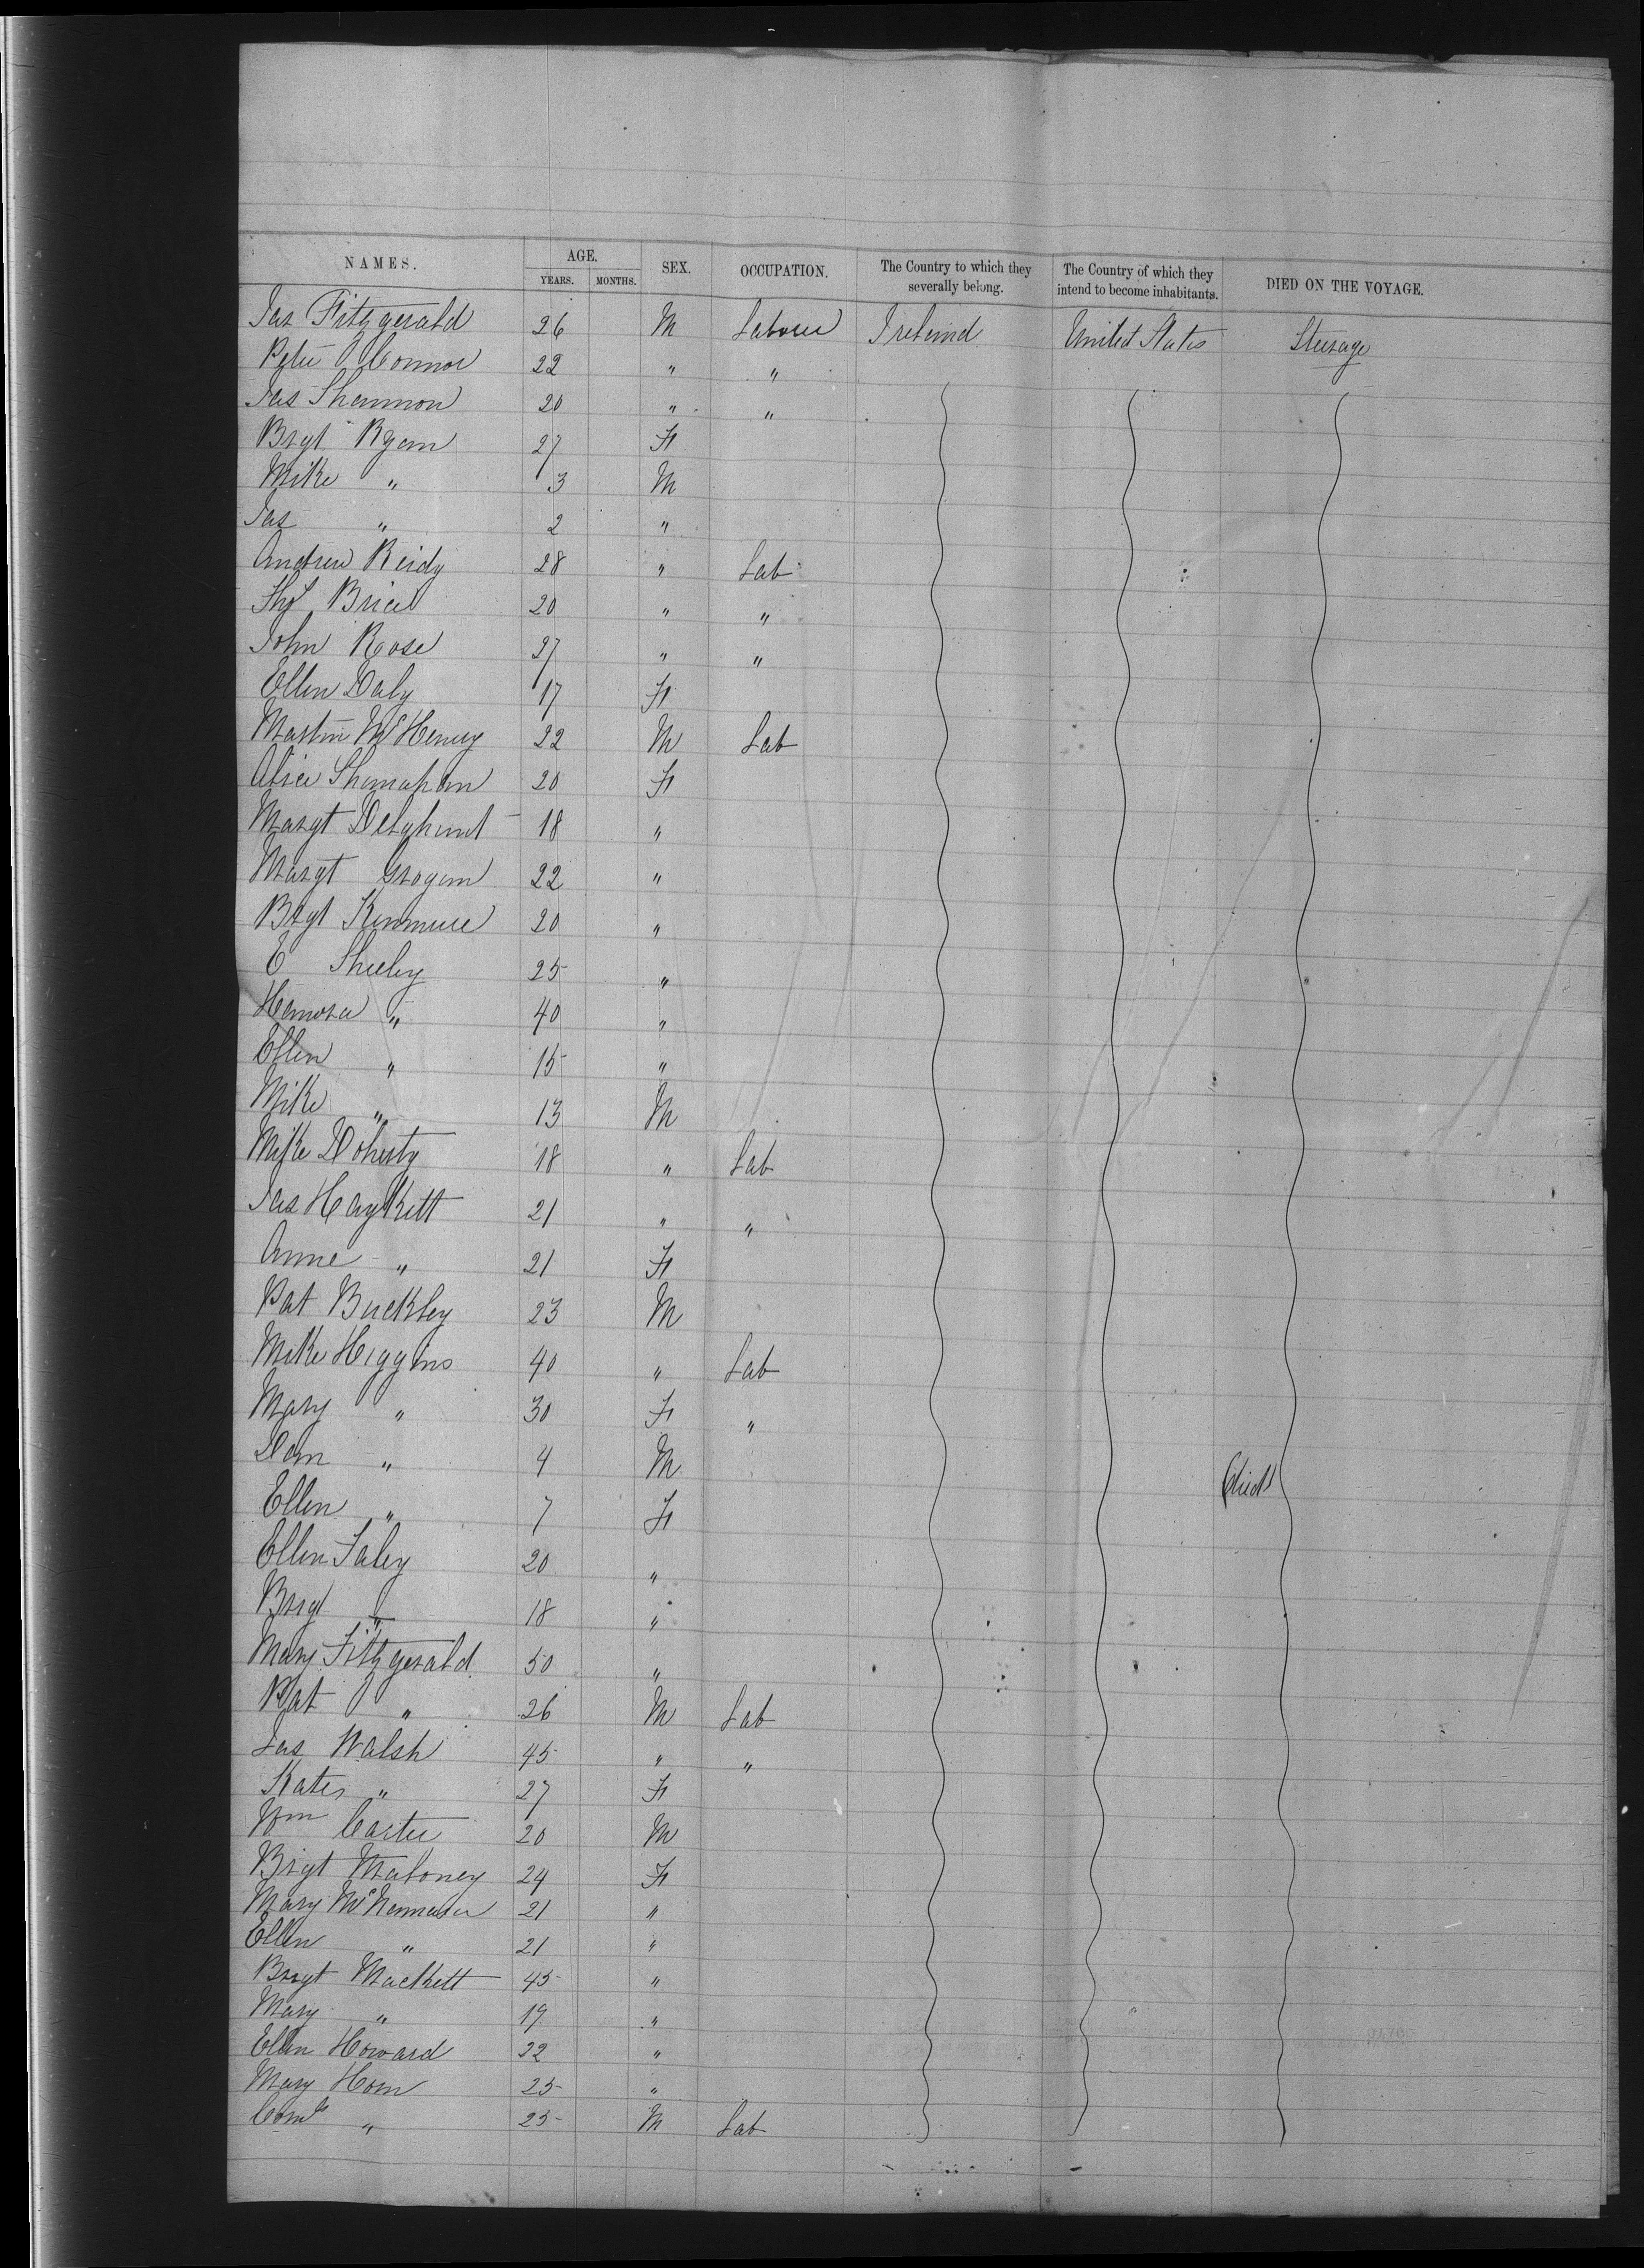 NAMES. AGE. SEX. OCCUPATION. The Country to which they severally belong. The Country of which they intend to become inhabitants. DIED ON THE VOYAGE.
YEARS. MONTHS.
Jas Fitzgerald 26 M Labourer Ireland United States Steerage
Peter O Connor 22 " "
Jas Shannon 20 " "
Brgt Ryan 27 F
Mike " 3 M
Jas " 2 "
Andrew Reidy 28 " Lab
Thos Brice 20 " "
John Rose 27 " "
Ellen Daly 17 F
Martin McHenry 22 M Lab
Alice Shanahan 20 F
Margt Delahunt 18 "
Margt Grogan 22 "
Brgt Kinmure 20 "
E Sheehy 25 "
Hanora " 40 "
Ellen " 15 "
Mike " 13 M
Mike Doherty 18 " Lab
Jas Hackett 21 " "
Anne " 21 F
Pat Buckley 23 M
Mike Higgins 40 " Lab
Mary " 30 F "
Dan " 4 M Died
Ellen " 7 F
Ellen Faley 20 "
Brgt " 18 "
Mary Fitzgerald 50 "
Pat " 26 M Lab
Jas Walsh 45 " "
Kate " 27 F
Wm Carter 20 M
Brgt Maloney 24 F
Mary McNamara 21 "
Ellen " 21 "
Brgt Mackett 45 "
Mary " 19 "
Ellen Howard 22 "
Mary Horn 25 "
" 25 M Lab